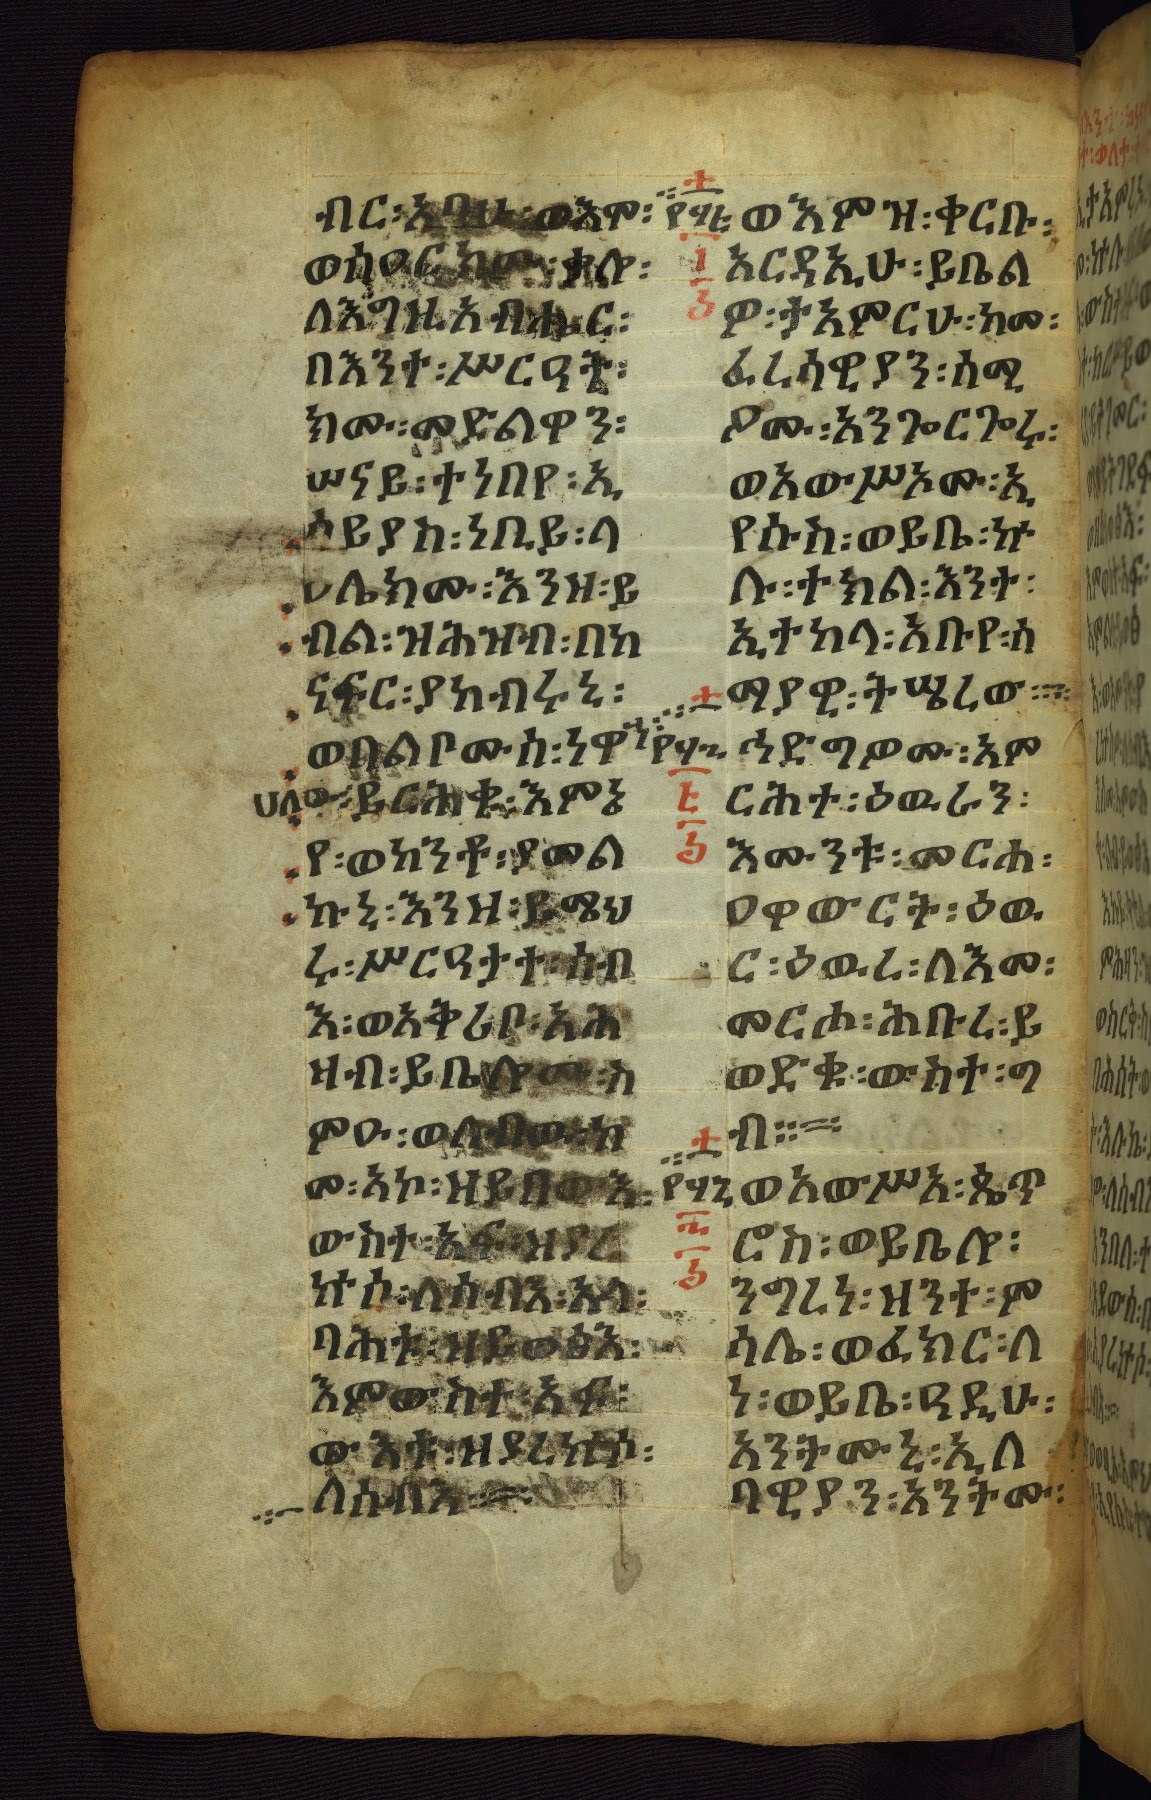 ብር፡አባሁ፡ወእሞ፡
ወሰዐርክሙ፡ቃሎ፡
ለእግዚአብሔር፡
በእንተ፡ሥርዓት፡
ክሙ፡መድልዋን፡
ሠናይ፡ተነበየ፡ኢ
ሳይያስ፡ነቢይ፡ላ
ዕሌክሙ፡እንዘ፡ይ
ብል፡ዝሕዝብ፡በከ
ናፍር፡ያከብሩኒ፡
ወበልቦሙሰ፡ነዋኀ
ሀለው፡ይርሕቁ፡እምኔ
የ፡ወከንቶ፡ያመል
ኩኒ፡እንዘ፡ይሜህ
ሩ፡ሥርዓታተ፡ሰብ
እ፡ወአቅሪቦ፡አሕ
ዛብ፡ይቤሎሙ፡ስ
ምዑ፡ወለብውከ
መ፡አኮ፡ዘይበውእ፡
ውስተ፡አፍ፡ዘያረ
ኵሶ፡ለሰብእ፡አላ፡
ባሕቱ፡ዘይወፅእ፡
እምውስተ፡አፍ፡
ውእቱ፡ዘያረኵሶ፡
ለሰብእ።
ወእምዝ፡ቀርቡ፡
አርዳኢሁ፡ይቤል
ዎ፡ታአምርሁ፡ከመ፡
ፈሪሳዊያን፡ሰሚ
ዖሙ፡አንጐርጐሩ፡
ወአውሥአሙ፡ኢ
የሱስ፡ወይቤ፡ኵ
ሉ፡ተክል፡እንተ፡
ኢተከላ፡አቡየ፡ሰ
ማያዊ፡ትሤረው።
ኅድግዎሙ፡እም
ርሕተ፡ዕዉራን፡
እሙንቱ፡መርሐ፡
ዐዋውርት፡ዕዉ
ር፡ዕዉረ፡ለእመ፡
መርሐ፡ሕቡረ፡ይ
ወድቁ፡ውስተ፡ግ
ብ።
ወአውሥአ፡ጴጥ
ሮስ፡ወይቤሎ፡
ንግረነ፡ዘንተ፡ም
ሳሌ፡ወፈክር፡ለ
ነ፡ወይቤ፡ዓዲሁ፡
አንትሙኒ፡ኢለ
ባዊያን፡አንትሙ፡